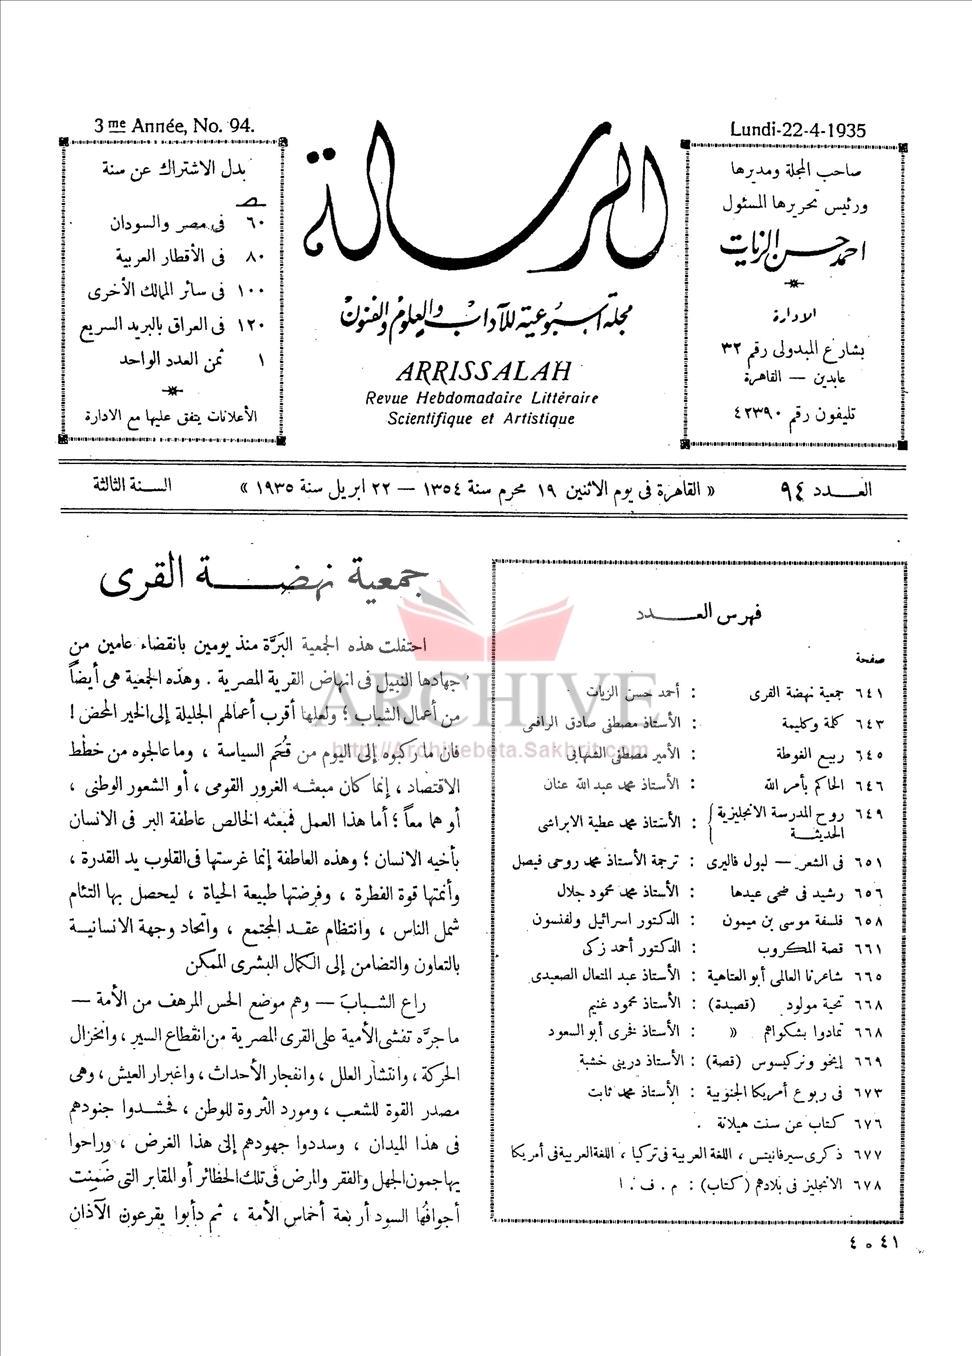 3me Année, No. 94.
Lundi-22-4-1935
صاحب المجلة ومديرها
ورئيس تحريرها المسئول
احمد حسن الزيات
الادارة
بشارع المبدولى رقم ٣٢
عابدين — القاهرة
تليفون رقم ٤٢٣٩٠
الرسالة
مجلة أسبوعية للآداب والعلوم والفنون
ARRISSALAH
Revue Hebdomadaire Littéraire
Scientifique et Artistique
بدل الاشتراك عن سنة
٦٠ فى مصر والسودان
٨٠ فى الأقطار العربية
١٠٠ فى سائر الممالك الأخرى
١٢٠ فى العراق بالبريد السريع
١ ثمن العدد الواحد
الأعلانات يتفق عليها مع الادارة
العـــدد ٩٤
« القاهرة فى يوم الاثنين ١٩ محرم سنة ١٣٥٤ — ٢٢ ابريل سنة ١٩٣٥ »
السنة الثالثة
فهرس العـــدد
صفحة
٦٤١ جمعية نهضة القرى : أحمد حسن الزيات
٦٤٣ كلمة وكليمة : الأستاذ مصطفى صادق الرافعى
٦٤٥ ربيع الغوطة : الأمير مصطفى الشهابى
٦٤٦ الحاكم بأمر الله : الأستاذ محمد عبد الله عنان
٦٤٩ روح المدرسة الانجليزية الحديثــة : الأستاذ محمد عطية الابراشى
٦٥١ فى الشعر — لبول فاليرى : ترجمة الأستاذ محمد روحى فيصل
٦٥٦ رشيد فى ضحى عيدها : الأستاذ محمد محمود جلال
٦٥٨ فلسفة موسى بن ميمون : الدكتور اسرائيل ولفنسون
٦٦١ قصة المكروب : الدكتور أحمد زكى
٦٦٥ شاعرنا العالمى أبو العتاهية : الأستاذ عبد المتعال الصعيدى
٦٦٨ تحية مولود (قصيدة) : الأستاذ محمود غنيم
٦٦٨ تمادوا بشكواهم « : الأستاذ فخرى أبو السعود
٦٦٩ إيخو ونركيسوس (قصة) : الأستاذ درينى خشبة
٦٧٣ فى ربوع أمريكا الجنوبية : الأستاذ محمد ثابت
٦٧٦ كتاب عن سنت هيلانة .
٦٧٧ ذكرى سيرفانتيس ، اللغة العربية فى تركيا ، اللغة العربية فى أمريكا
٦٧٨ الانجليز فى بلادهم (كتاب) : م . ف . ا
جمعية نهضـــة القرى
احتفلت هذه الجمعية البَرَّة منذ يومين بانقضاء عامين من
جهادها النبيل فى انهاض القرية المصرية . وهذه الجمعية هى أيضاً
من أعمال الشباب ؛ ولعلها أقرب أعمالهم الجليلة إلى الخير المحض !
فان ما ركبوه إلى اليوم من قُحَم السياسة ، وما عالجوه من خطط
الاقتصاد ، إنما كان مبعثــه الغرور القومى ، أو الشعور الوطنى ،
أو هما معاً ؛ أما هذا العمل فمبعثه الخالص عاطفة البر فى الانسان
بأخيه الانسان ؛ وهذه العاطفة إنما غرستها فى القلوب يد القدرة ،
وأنمتها قوة الفطرة ، وفرضتها طبيعة الحياة ، ليحصل بها التئام
شمل الناس ، وانتظام عقــد المجتمع ، واتحاد وجهة الانسانيــة
بالتعاون والتضامن إلى الكمال البشرى الممكن
راع الشــبابَ — وهم موضع الحس المرهف من الأمة —
ما جرَّه تفشى الأمية على القرى المصرية من انقطاع السير ، وانخزال
الحركة ، وانتشار العلل ، وانفجار الأحداث ، واغبرار العيش ، وهى
مصدر القوة للشعب ، ومورد الثروة للوطن ، فحشــدوا جنودهم
فى هذا الميدان ، وسددوا جهودهم إلى هذا الغرض ، وراحوا
يهاجمون الجهل والفقر والمرض فى تلك الحظائر أو المقابر التى ضَمِنت
أجوافُها السود أربعة أخماس الأمة ، ثم دأبوا يقرعون الآذان
٤١ ٥ ٤
ARCHIVE
http://Archivebeta.Sakhrit.com